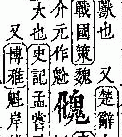 獸也 又 楚辭
戰國策 魏
介元作
大也 史記 孟嘗
又 博雅 魁岸